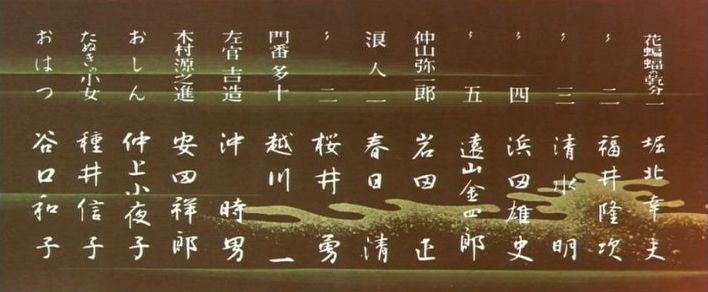 花蝙蝠の乾分一 堀北幸夫
〃 二 福井隆次
〃 三 清水明
〃 四 浜田雄史
〃 五 遠山金四郎
仲山弥一郎 岩田正
浪人一 春日清
〃 二 桜井勇
門番多十 越川一
左官吉造 沖時男
木村源之進 安田祥郎
おしん 仲上小夜子
たぬきの小女 種井信子
おはつ 谷口和子